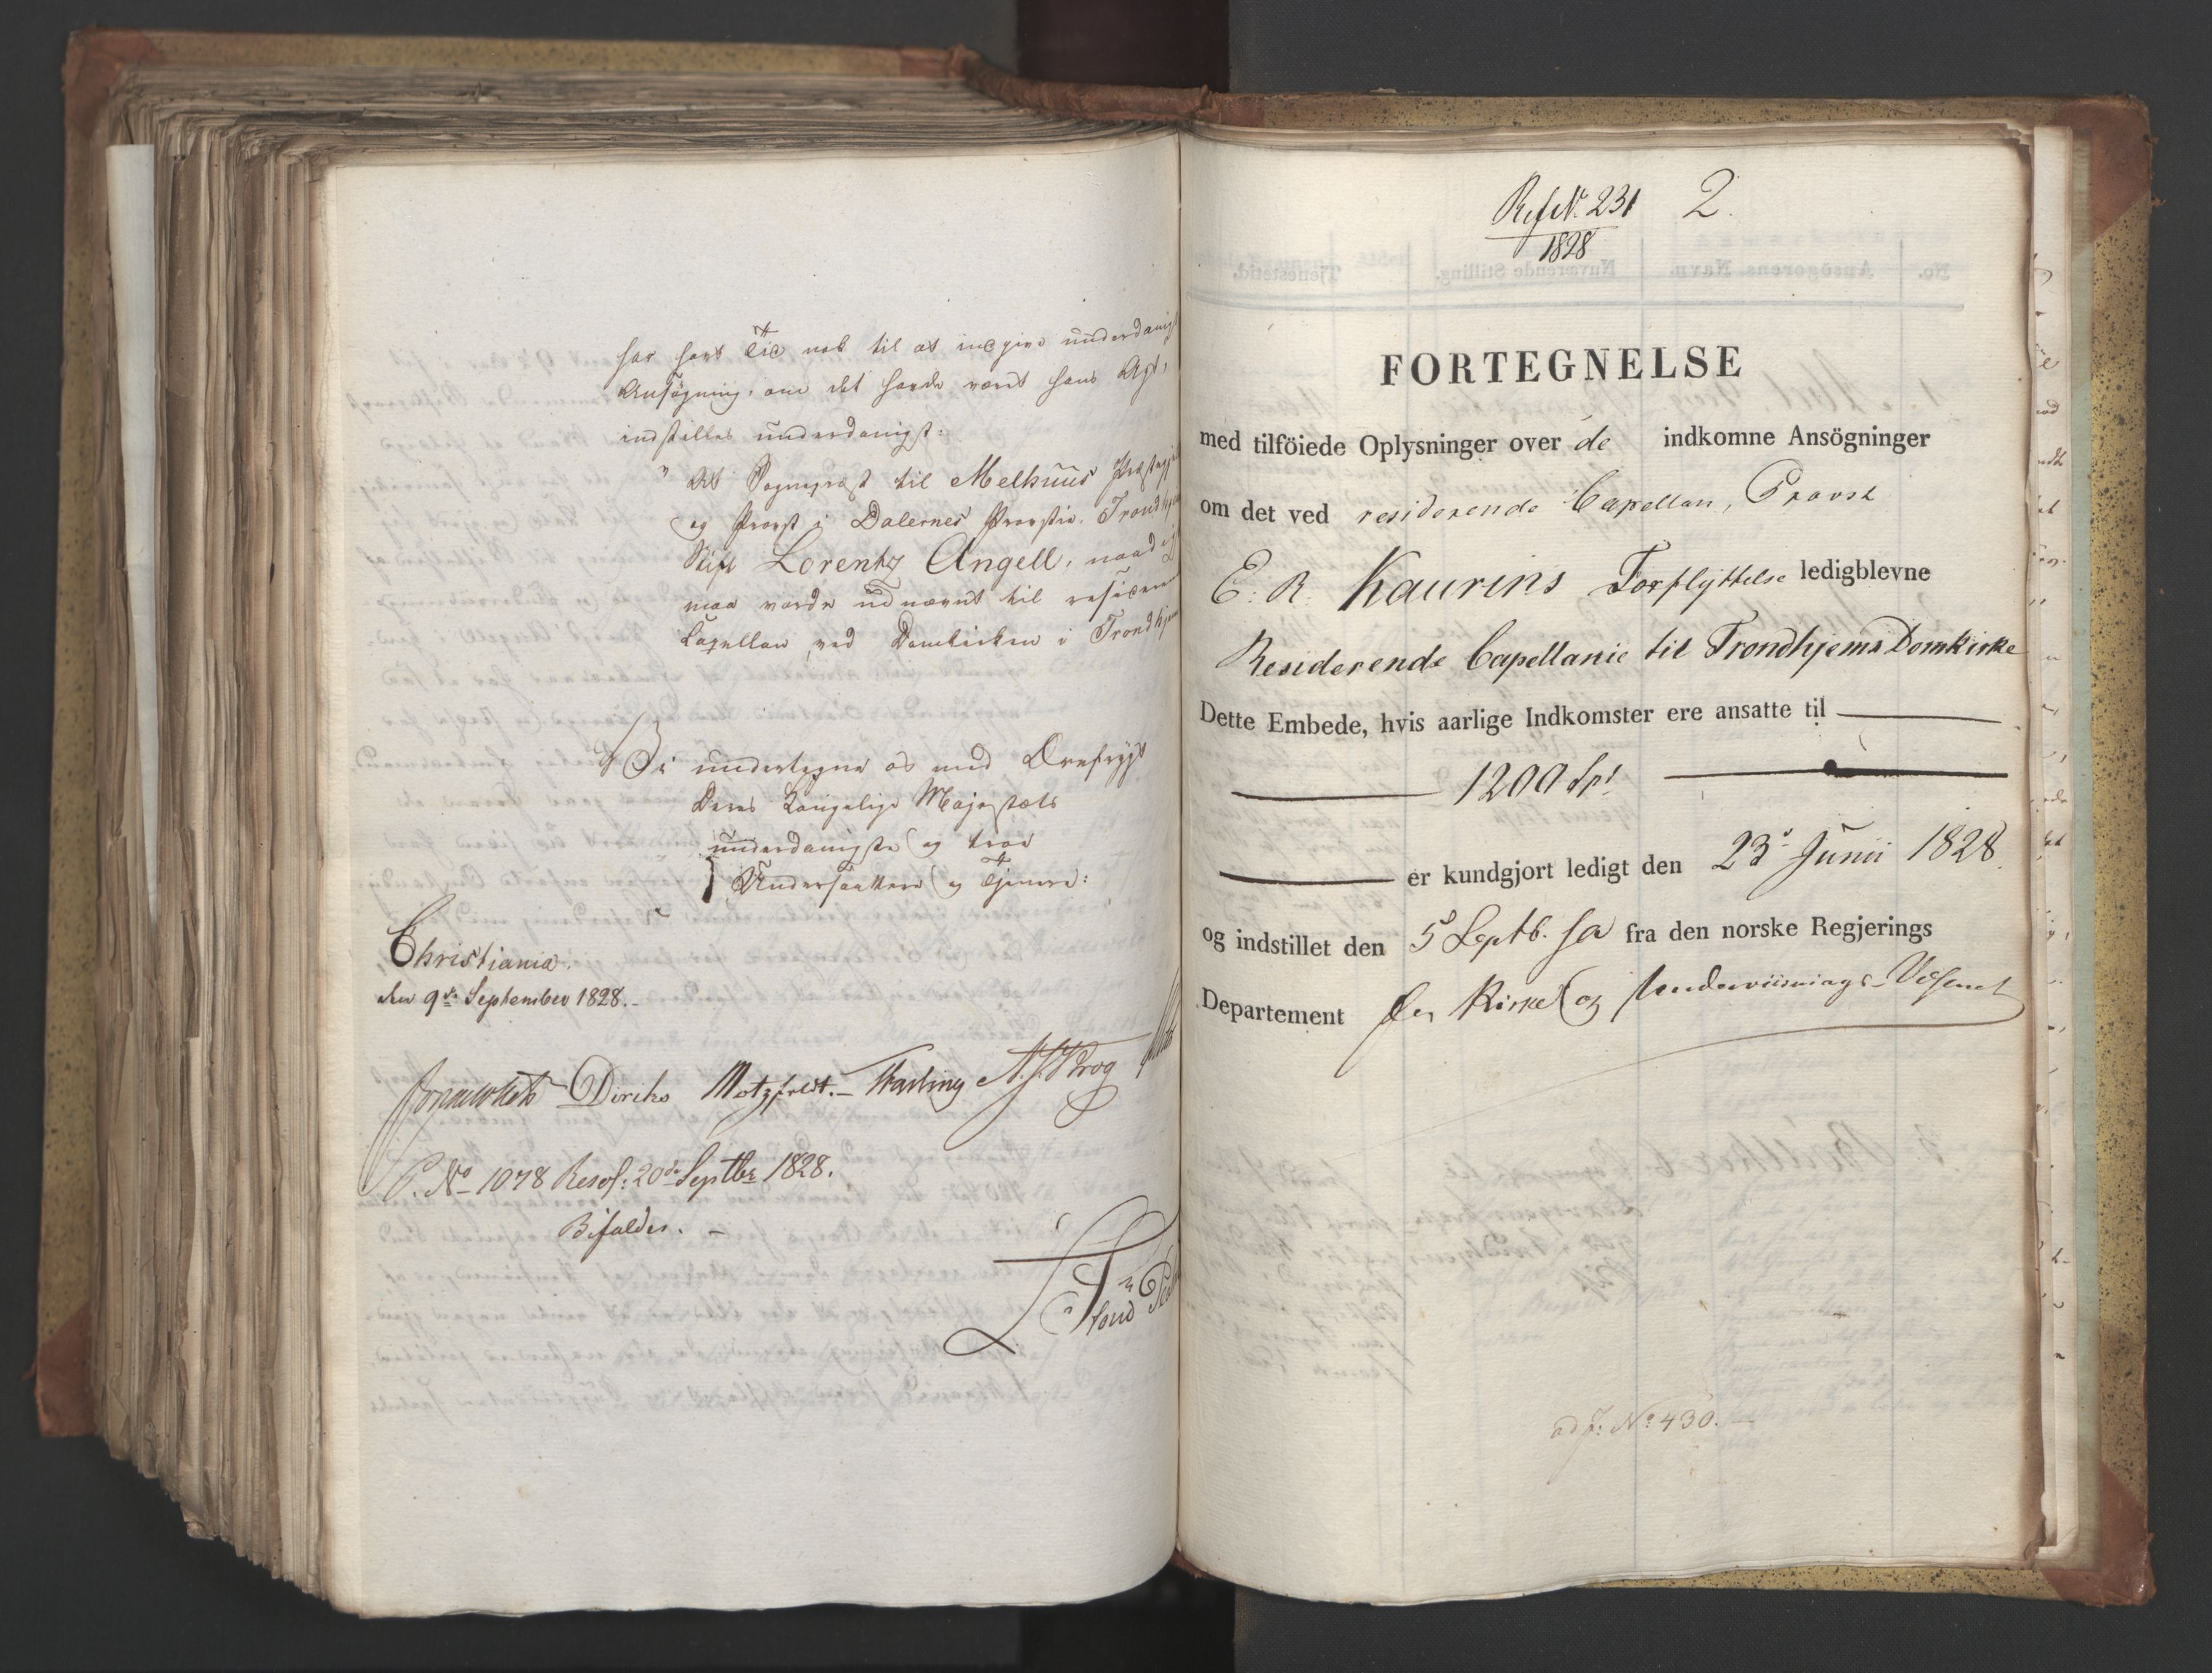 har havt Tid nok til at indgive underdanigst
Ansøgning, om det havde været hans Agt,
indstilles underdanigst:
" At Sognepræst til Melhuus Præstegjeld
og Provst i Dalernes Provstie, Trondhjems
Stift Lorentz Angell, naadigst
maa vorde udnævnt til residerende
Capellan ved Domkirken i Trondhjem
Vi undertegne os med Ærefrygt
Deres Kongelige Majestæts
underdanigste og troe
Undersaatter og Tjenere:
Christiania.
den 9de September 1828.-
Diriks Motzfeldt.- Fasting A. J. Krog
P. No 1078 Resol: 20de Septbr 1828.
Bifaldes. -
Ref N. 231 2.
1828
FORTEGNELSE
med tilföiede Oplysninger over de indkomne Ansögninger
om det ved residerende Capellan, Provst
E. R. Kaurins Forflyttelse ledigblevne
Residerende Capellanie til Trondhjems Domkirke
Dette Embede, hvis aarlige Indkomster ere ansatte til
1200 Spd
er kundgjort ledigt den 23de Junii 1828
og indstillet den 5 Septb. s a fra den norske Regjerings
Departement for Kirke og Underviisnings-Væsenet
ad J: No 430. -
No. Ansögerens Navn. Nuværende Stilling. Tjenestetid.